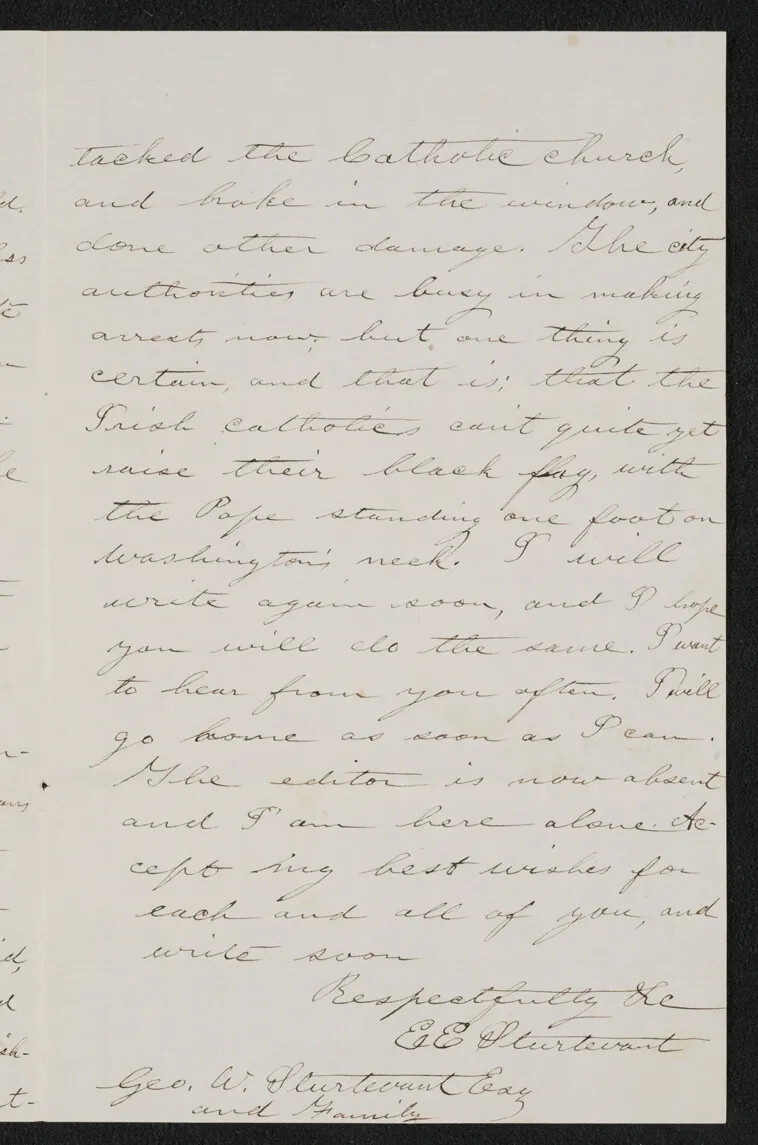 tacked the Catholic church,
and broke in the window, and
done other damage. The city
authorities are busy in making
arrests now; but one thing is
certain, and that is; that the
Irish catholics can't quite yet
raise their black flag, with
the Pope standing one foot on
Washington's neck. I will
write again soon, and I hope
you will do the same. I want
to hear from you often. I will
go home as soon as I can.
The editor is now absent
and I am here alone. Ac-
cept my best wishes for
each and all of you, and
write soon
Respectfully &c
EE Sturtevant
Geo. W. Sturtevant Esq
and Family